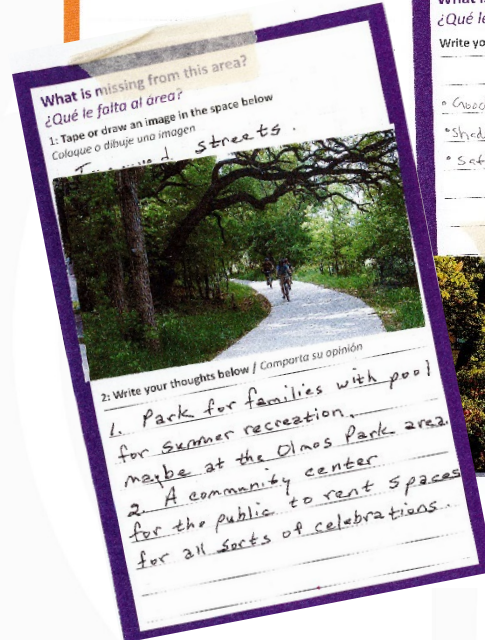 What is missing from this area?
¿Qué le falta al área?
1: Tape or draw an image in the space below
Coloque o dibuje una imagen
streets.
2: Write your thoughts below / Comparta su opinión
1. Park for families with pool
for summer recreation.
maybe at the Olmos Park area.
2. A community center
for the public to rent spaces
for all sorts of celebrations.
¿Qué le
Write yo